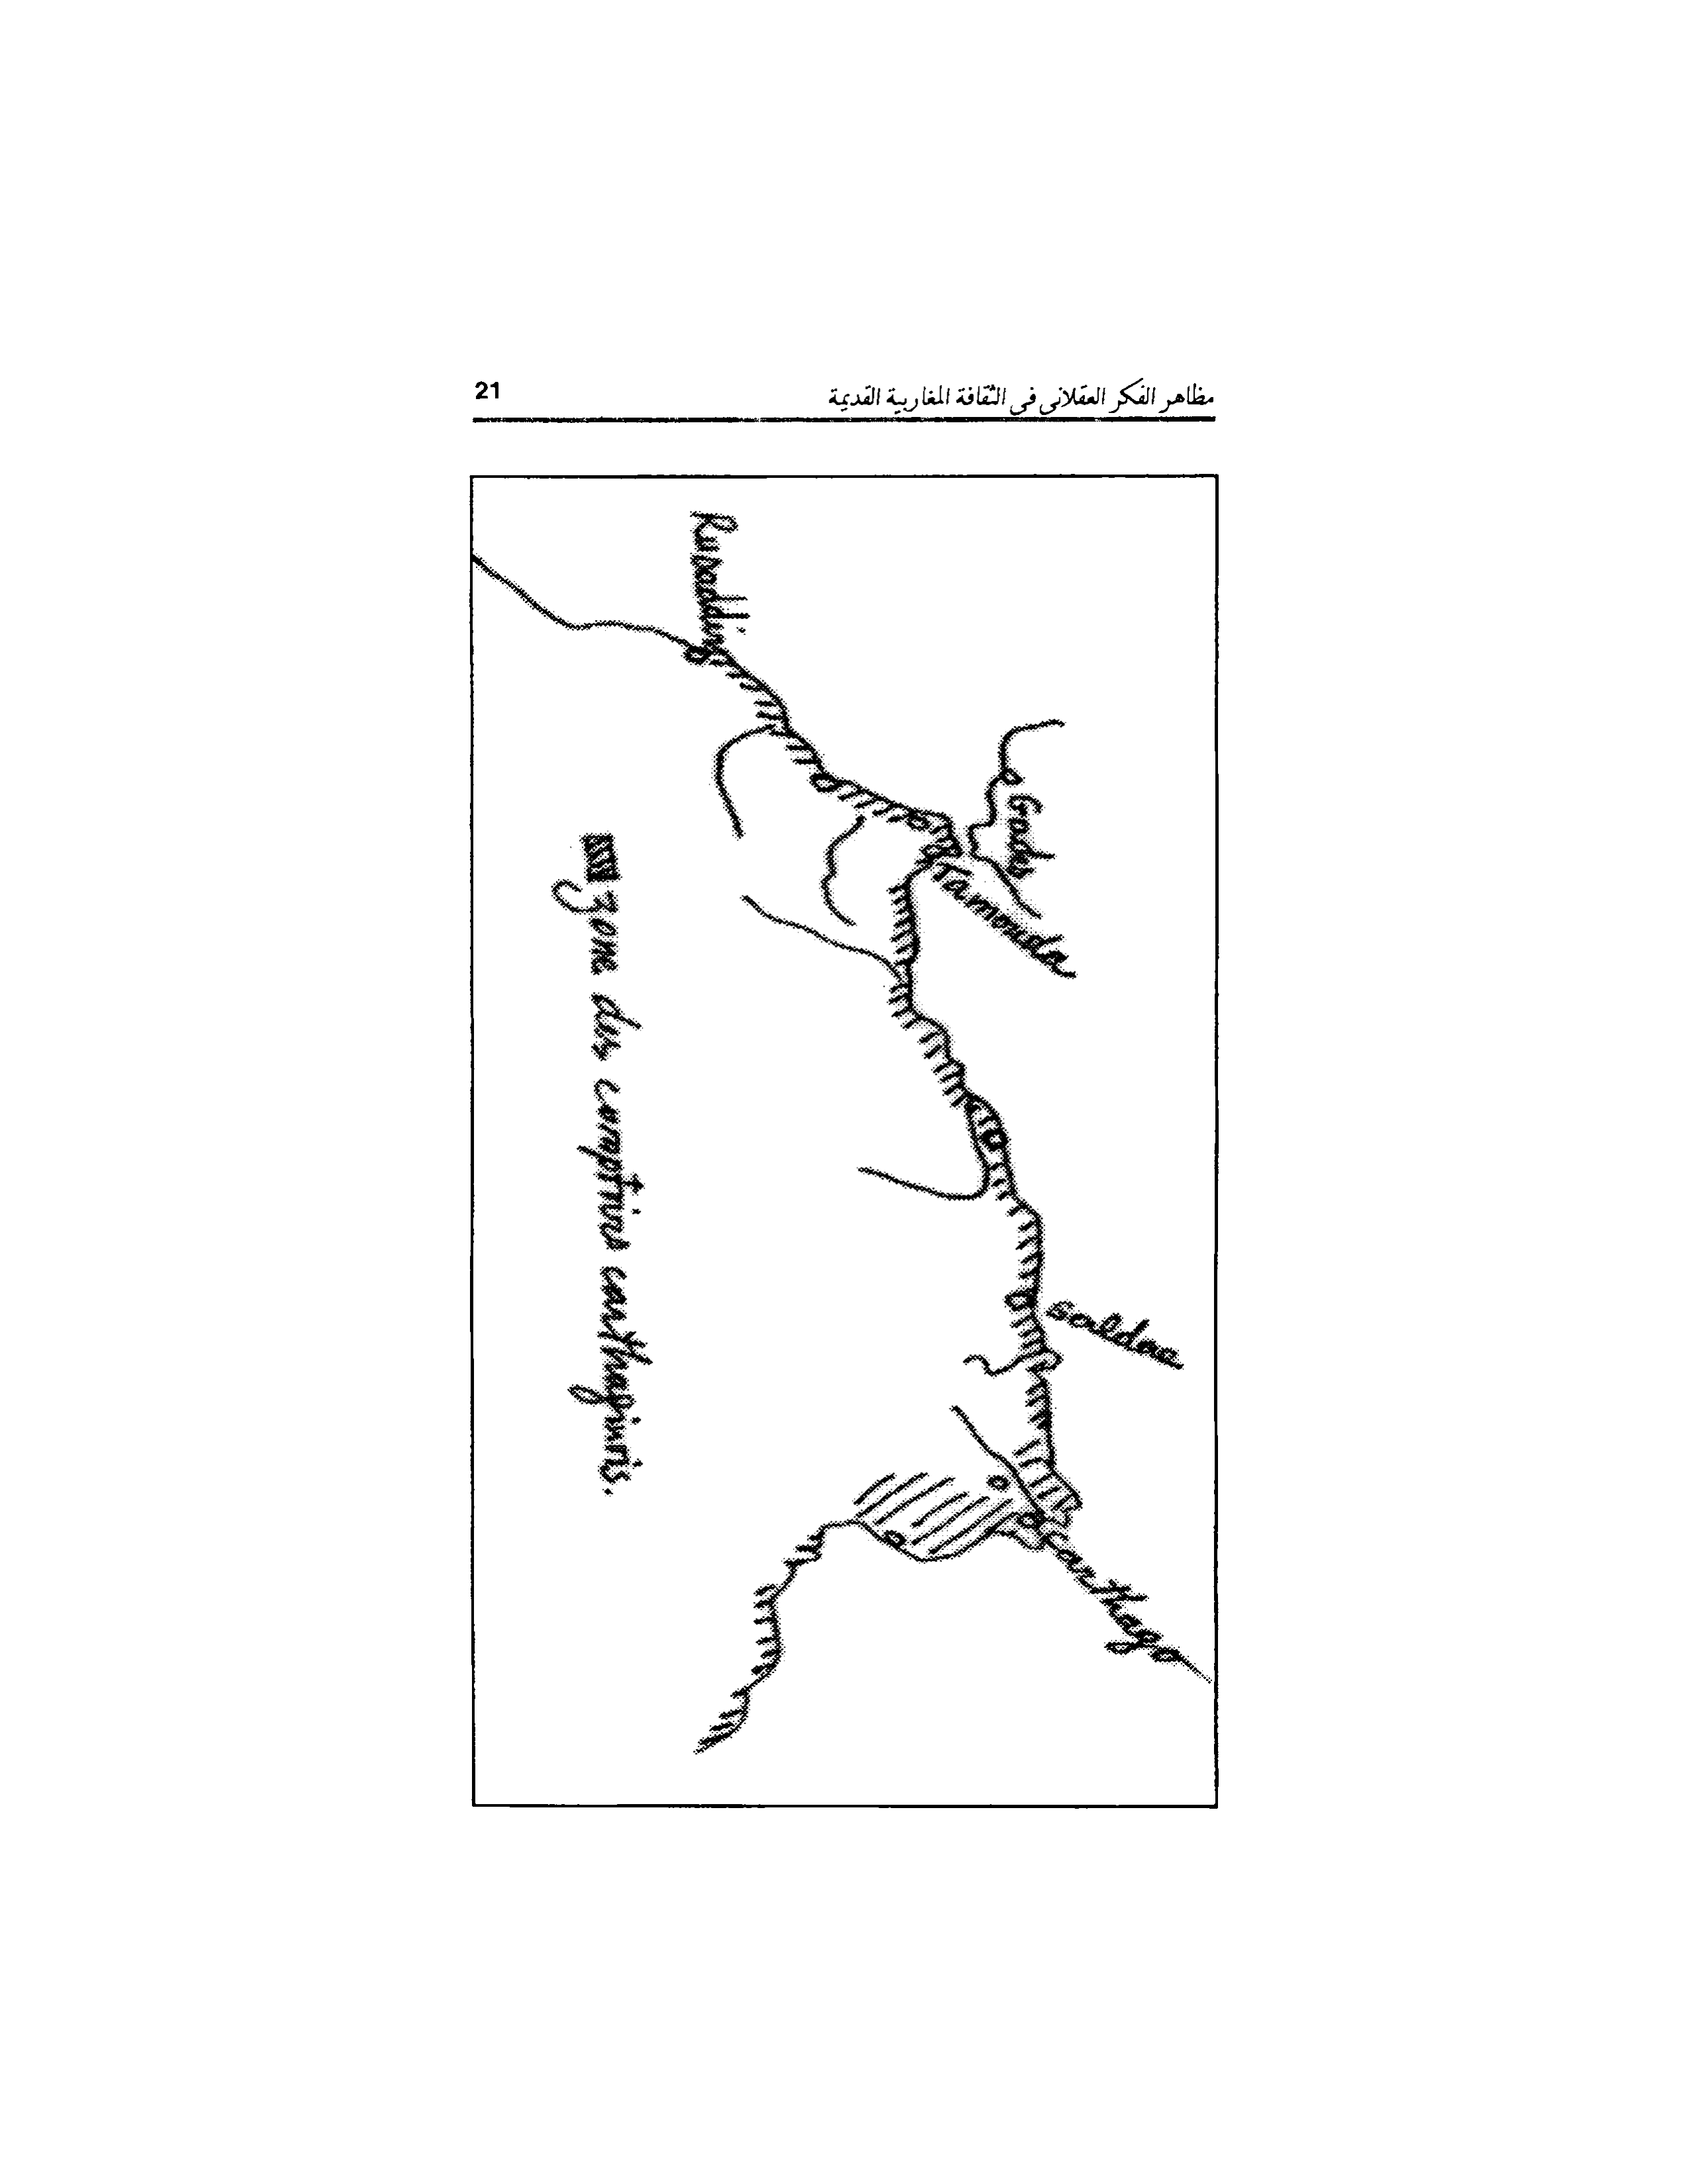 مظاهر الفكر العقلاني في الثقافة المغاربية القديمة
21
Rusaddir
Grades
Tamouda
Saldae
Carthago
zone des comptoirs carthaginois.